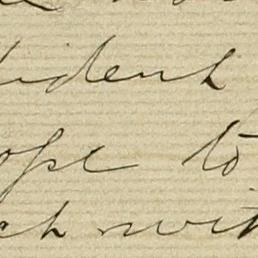 ident
ope to
ch with